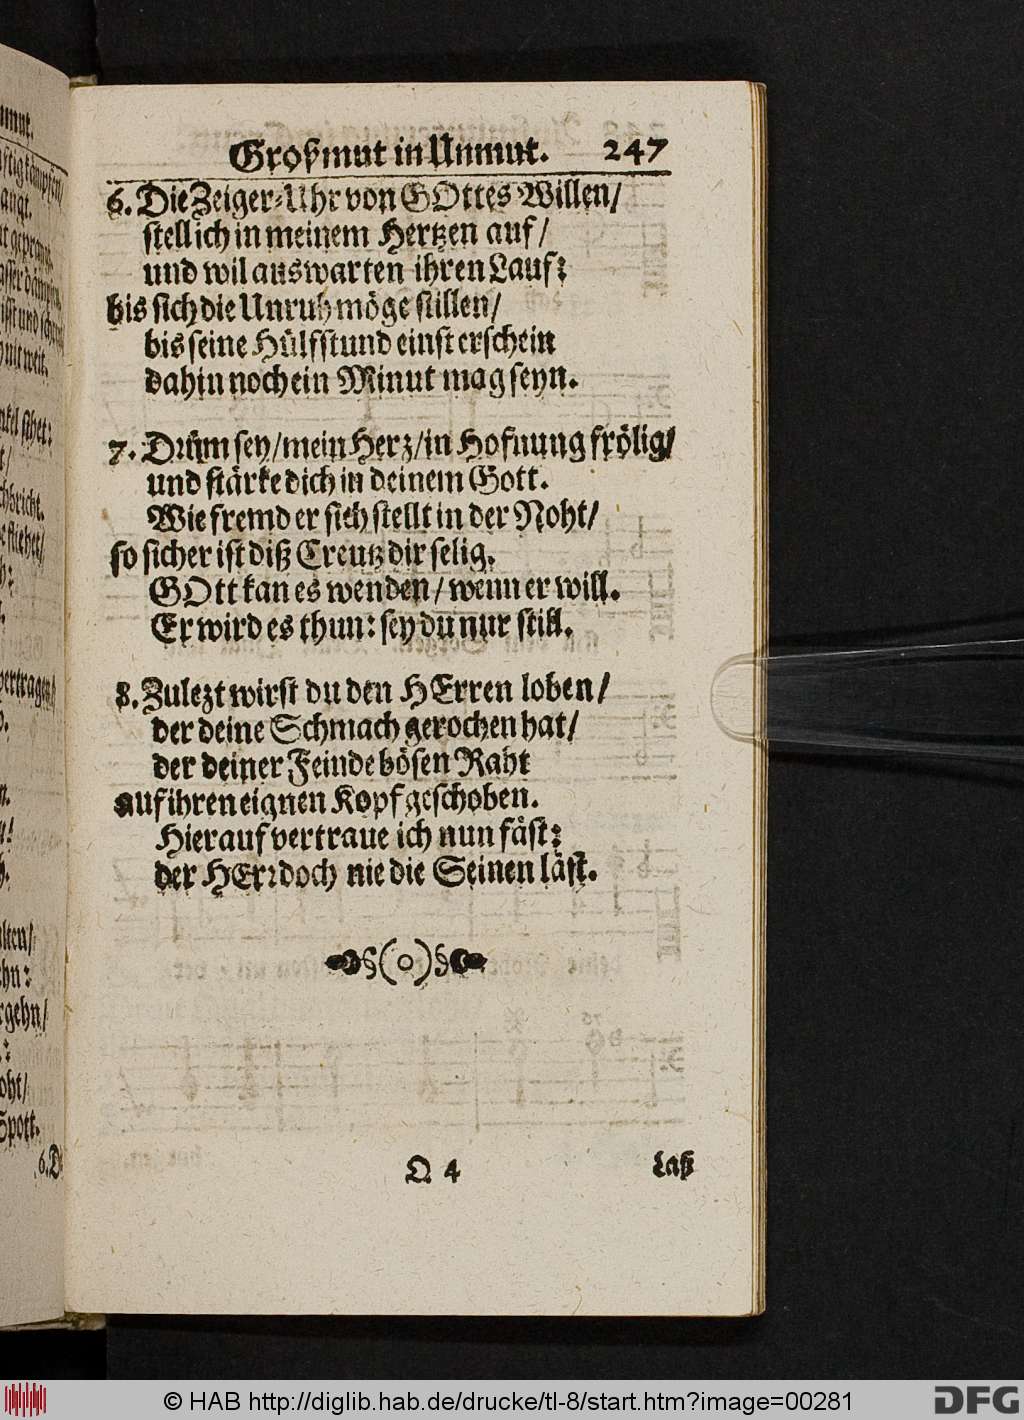 Großmut in Unmut. 247
6. Die Zeiger-Uhr von GOttes Willen/
stell ich in meinem Hertzen auf/
und wil auswarten ihren Lauf:
bis sich die Unruh möge stillen/
bis seine Hülfstund einst erschein
dahin noch ein Minut mag seyn.
7. Drüm sey/mein Herz/in Hofnung frölig/
und stärke dich in deinem Gott.
Wie fremd er sich stellt in der Noht/
so sicher ist diß Creutz dir selig.
GOtt kan es wenden/wenn er will.
Er wird es thun: sey du nur still.
8. Zulezt wirst du den HErren loben/
der deine Schmach gerochen hat/
der deiner Feinde bösen Raht
auf ihren eignen Kopf geschoben.
Hierauf vertraue ich nun fäst:
der HErr doch nie die Seinen läst.
§(o)§
Q 4 Laß
© HAB http://diglib.hab.de/drucke/tl-8/start.htm?image=00281
DFG